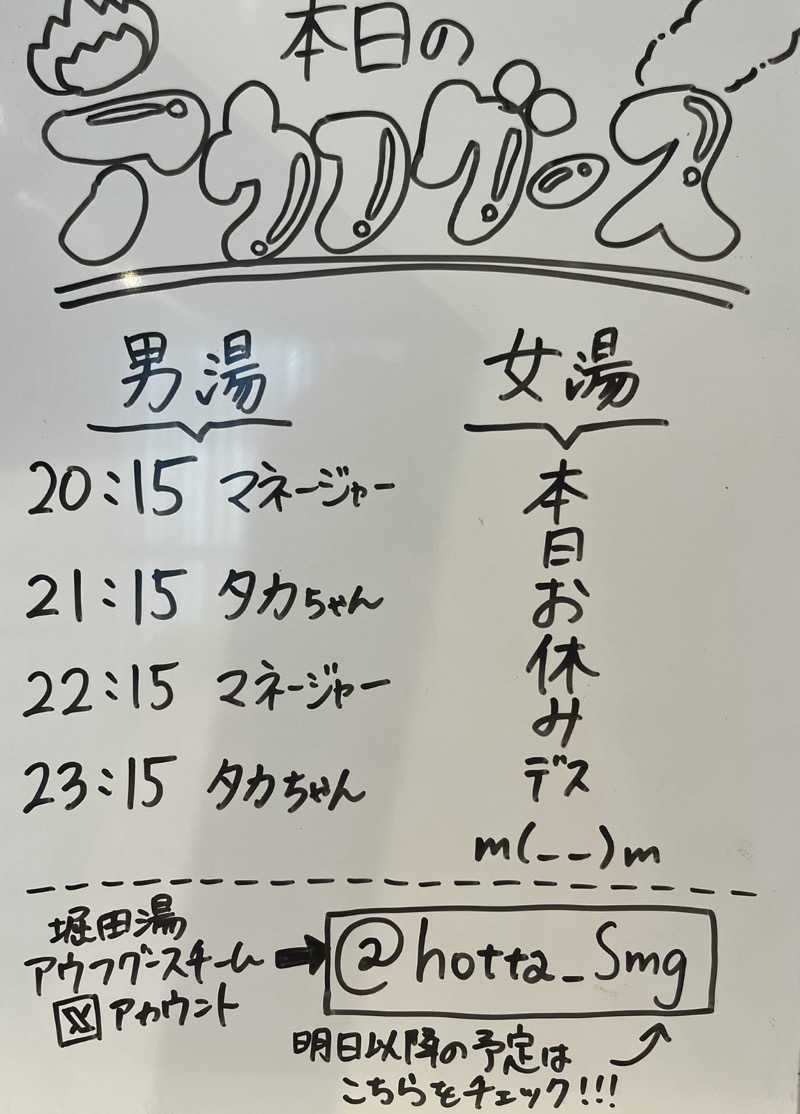 本日の
アウフグース
男湯
20:15 マネージャー
21:15 タカちゃん
22:15 マネージャー
23:15 タカちゃん
女湯
本日お休みデス
m(_ _)m
堀田湯
アウフグースチーム
X アカウント
@hotta_Smg
明日以降の予定は
こちらをチェック!!!